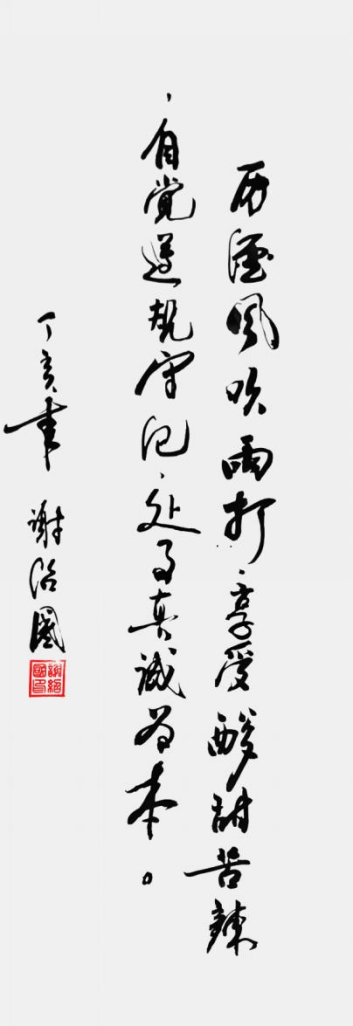 历经风吹雨打，享受酸甜苦辣
，自觉遵规守纪，处事真诚为本。
丁亥年 谢绍國